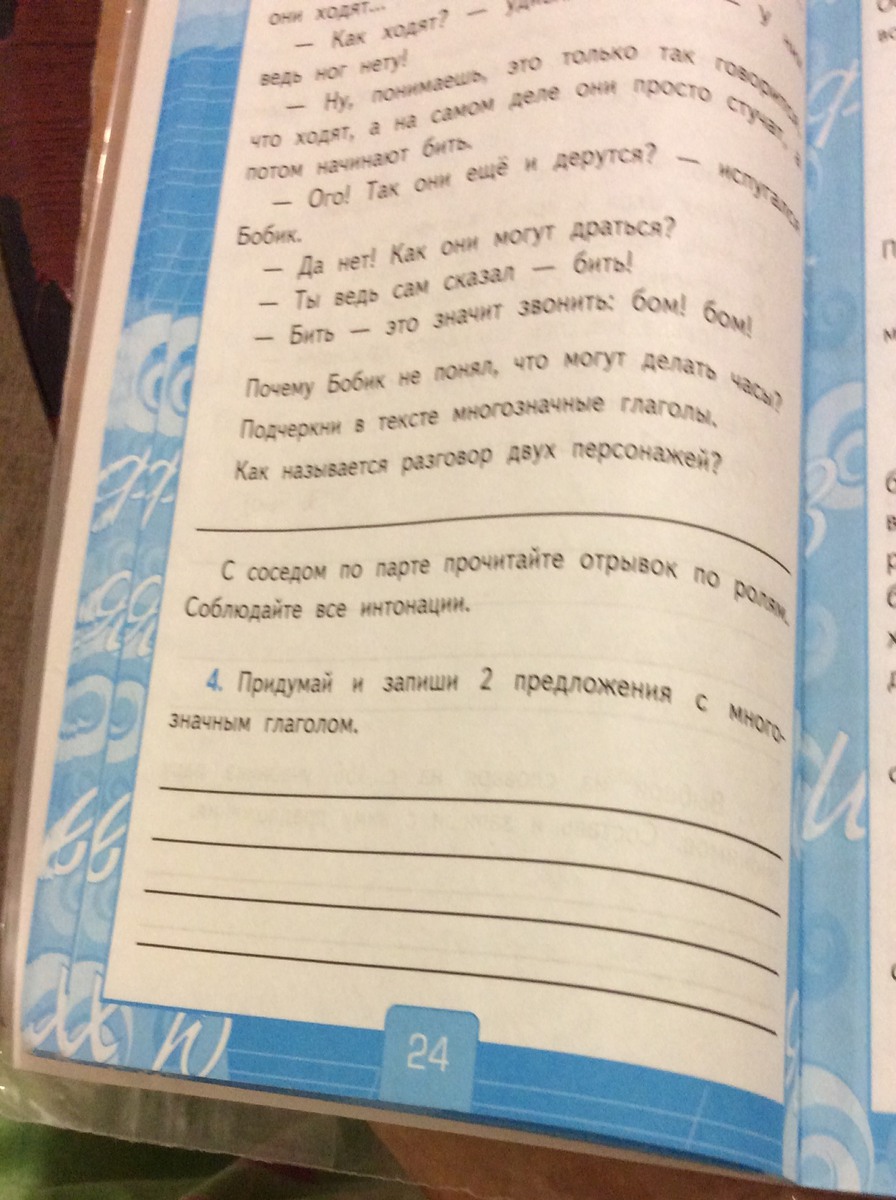 они ходят...
— Как ходят? — у них
ведь ног нету!
— Ну, понимаешь, это только так говорится,
что ходят, а на самом деле они просто стучат, а
потом начинают бить.
— Ого! Так они ещё и дерутся? — испугался
Бобик.
— Да нет! Как они могут драться?
— Ты ведь сам сказал — бить!
— Бить — это значит звонить: бом! бом!
Почему Бобик не понял, что могут делать часы?
Подчеркни в тексте многозначные глаголы.
Как называется разговор двух персонажей?
С соседом по парте прочитайте отрывок по ролям.
Соблюдайте все интонации.
4. Придумай и запиши 2 предложения с много-
значным глаголом.
24